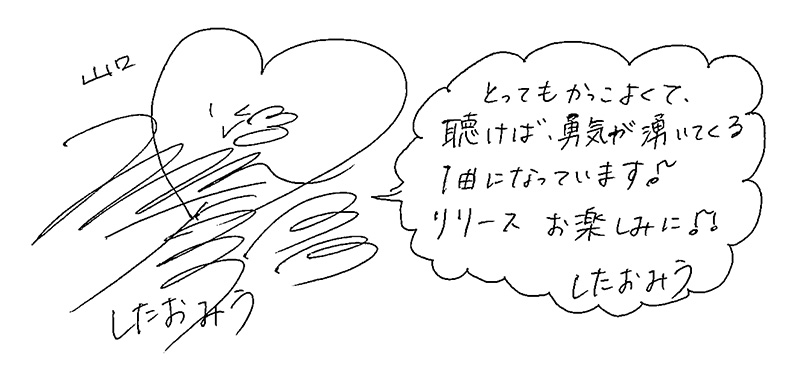 山口
したおみう
とってもかっこよくて、
聴けば、勇気が湧いてくる
1曲になっています♪
リリース お楽しみに♫
したおみう